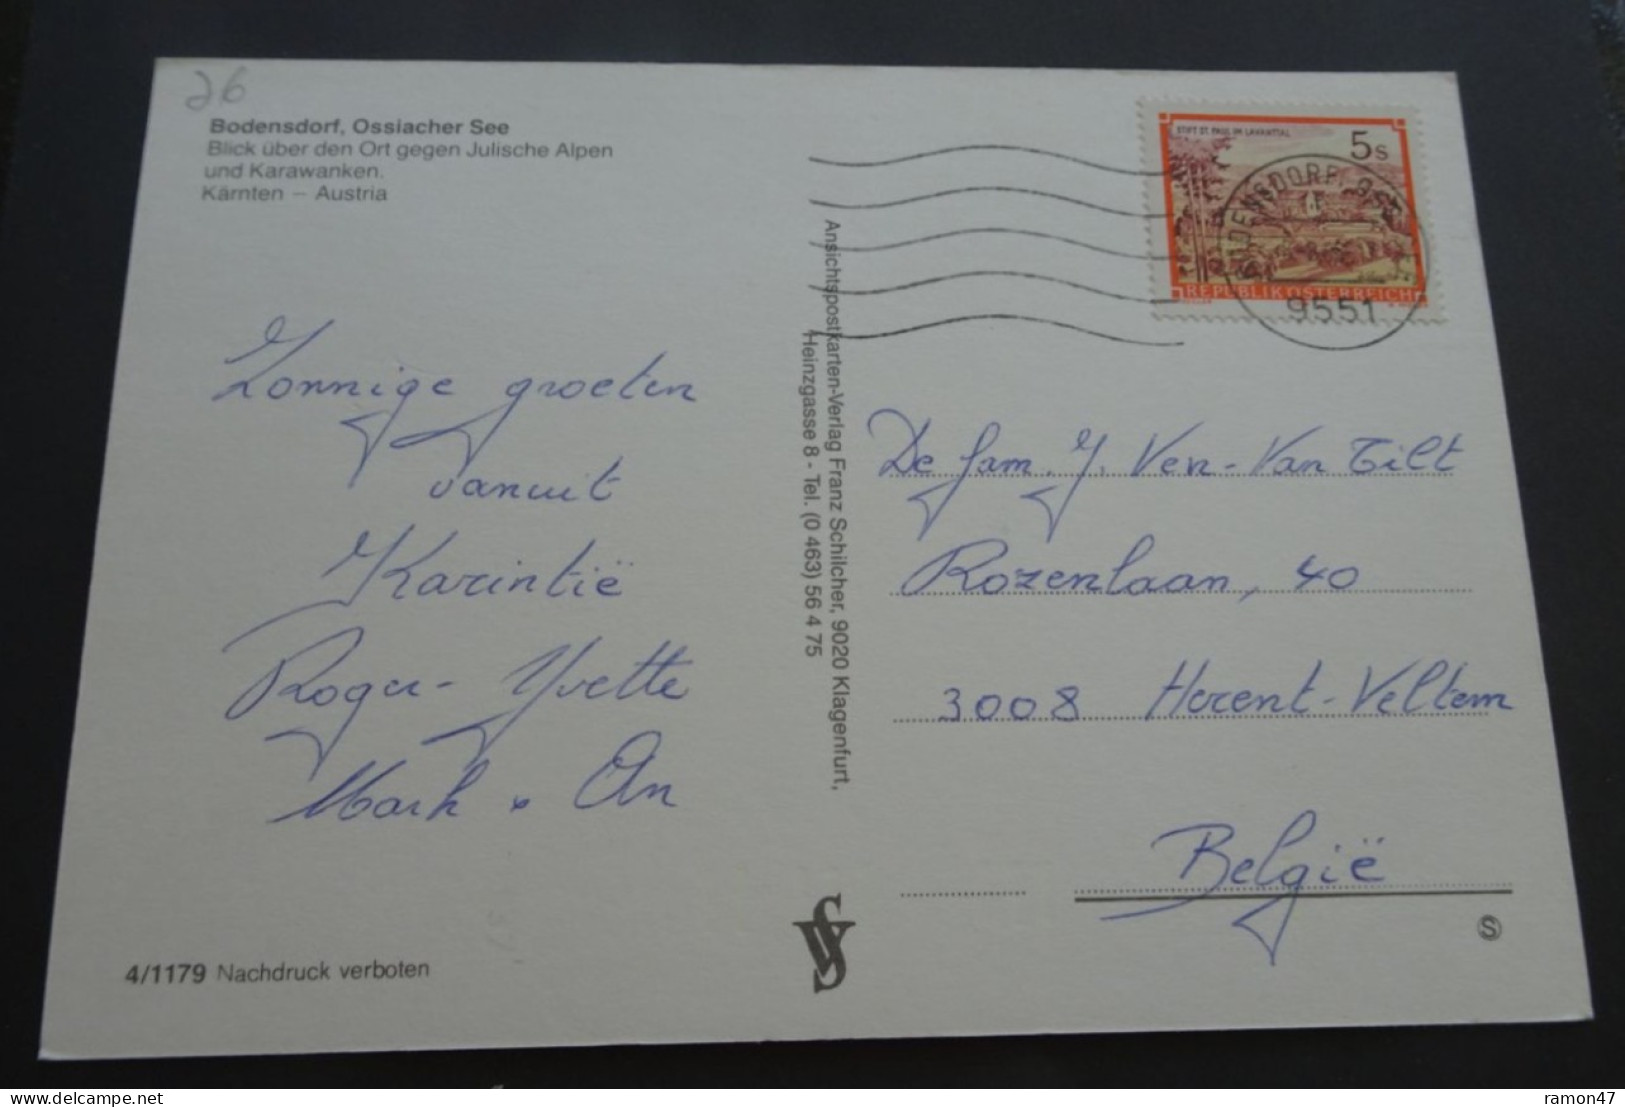 26
Bodensdorf, Ossiacher See
Blick über den Ort gegen Julische Alpen
und Karawanken.
Kärnten – Austria
Zonnige groeten
vanuit
Karintië
Roger - Yvette
Mark + An
4/1179 Nachdruck verboten
Ansichtspostkarten-Verlag Franz Schilcher, 9020 Klagenfurt,
Heinzgasse 8 - Tel. (0 463) 56 4 75
STIFT ST. PAUL IM LAVANTTAL
5 S
REPUBLIK ÖSTERREICH
BODENSDORF
9551
De fam. J. Ven - Van Tilt
Rozenlaan, 40
3008 Herent-Veltem
België
S
ramon47